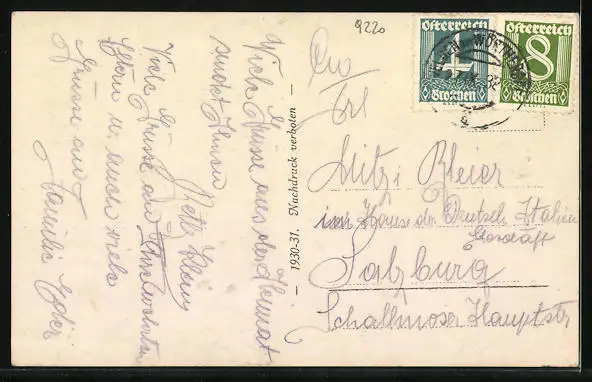 9220
Österreich
4
Groschen
Österreich
8
Groschen
An
Frl
Mitzi Bleier
im Hause der Deutsch Italien
Geschäft
Salzburg
Schallmoser Hauptstr
— 1930-31. Nachdruck verboten —
Viele Grüsse aus der Heimat
sendet Ihnen
Viele Grüsse an Ihre werten
Eltern u. auch viele
Grüsse an
Familie Eder